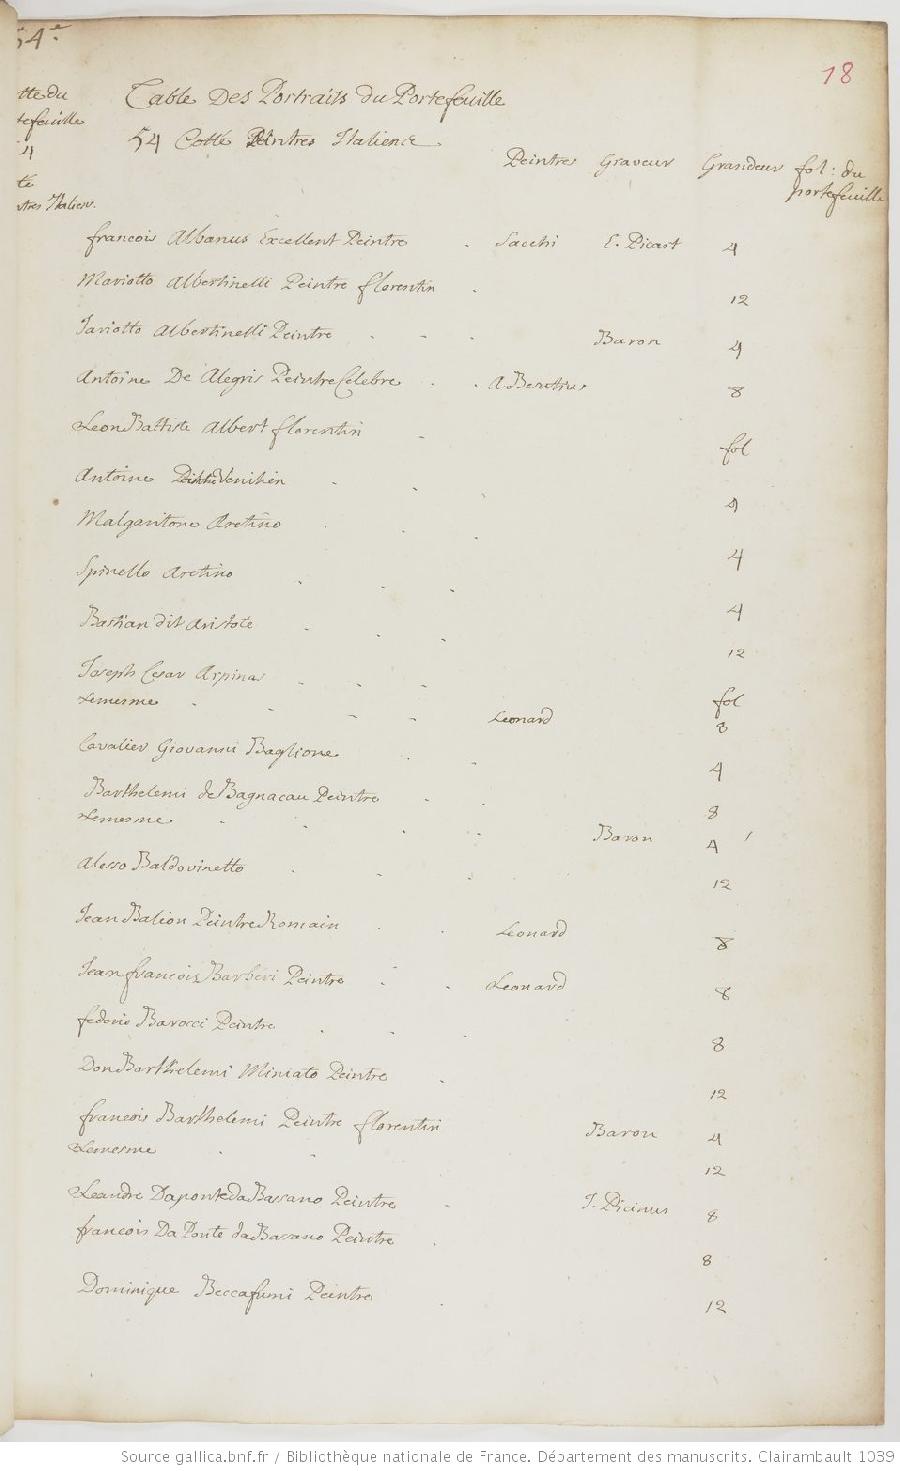 54e.
18
tte du
tefeuille
4
te
ntres Italien.
Table Des Portraits du Portefeuille
54 Cotte Peintres Italiens
Peintres Graveur Grandeur fol: du portefeuille
francois Albanus Excellent Peintre . Sacchi E. Picart 4
Mariotto Albertinelli Peintre florentin . 12
Jariotto Albertinelli Peintre . . . Baron 4
Antoine De Alegris Peintre Celebre . . A. Berttius 8
Leon Battiste Albert florentin . fol
Antoine Venitien . . . 4
Malgaritone Aretino . . 4
Spinello Aretino . . . 4
Bastian dit Aristote . . . 12
Joseph Cesar Arpinas . . . fol
Lemesme . . . . Leonard 8
Cavalier Giovanni Baglione . . 4
Barthelemi de Bagnacau Peintre . . 8
Lemesme . . . . Baron 4
Alesso Baldovinetto . . . 12
Jean Balion Peintre Romain . . Leonard 8
Jean francois Barbieri Peintre . . Leonard 8
federic Barocci Peintre . . . 8
Don Barthelemi Miniato Peintre . 12
francois Barthelemi Peintre florentin Baron 4
Lemesme . . 12
Leandre Daponte da Bassano Peintre . J. Picinus 8
francois Da Ponte da Basano Peintre . 8
Dominique Beccafumi Peintre . 12
Source gallica.bnf.fr / Bibliothèque nationale de France. Département des manuscrits. Clairambault 1039